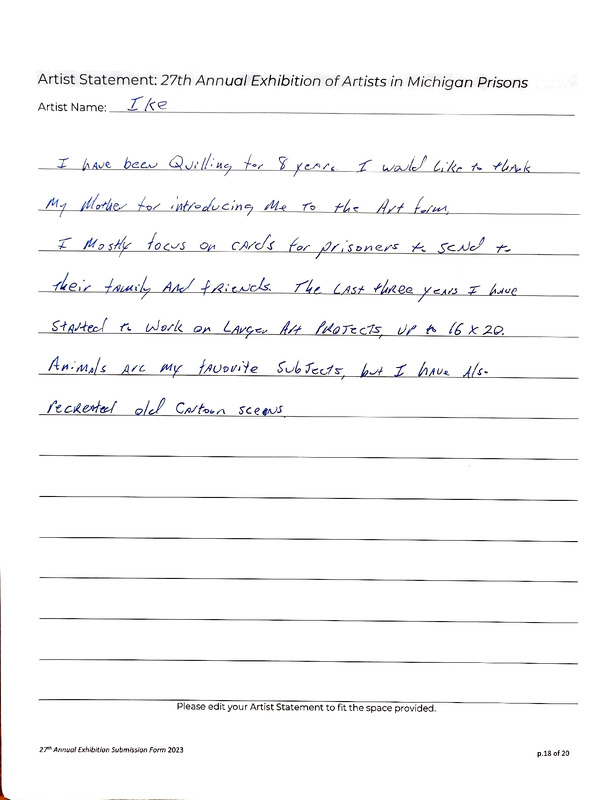 Artist Statement: 27th Annual Exhibition of Artists in Michigan Prisons
Artist Name: Ike
I have been Quilling for 8 years. I would like to thank
My Mother for introducing Me To the Art form.
I Mostly focus on cards for prisoners to send to
their family And friends. The Last three years I have
Started to Work on Larger Art Projects, up to 16 x 20.
Animals are my favovite Subjects, but I have Als-
recreated old Cartoon sceens
Please edit your Artist Statement to fit the space provided.
27th Annual Exhibition Submission Form 2023
p.18 of 20